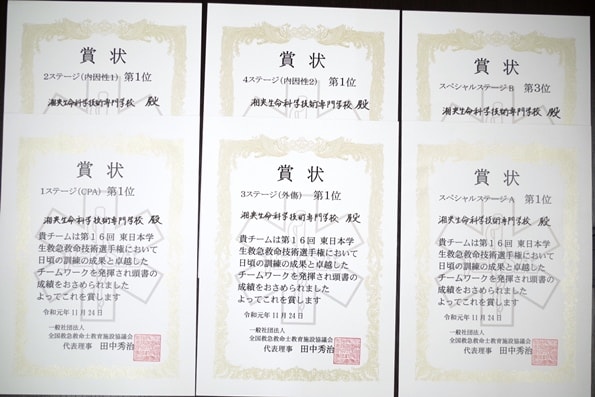 賞 状
2ステージ(内因性1) 第1位
湘央生命科学技術専門学校 殿
賞 状
4ステージ(内因性2) 第1位
湘央生命科学技術専門学校 殿
賞 状
スペシャルステージB 第3位
湘央生命科学技術専門学校 殿
賞 状
1ステージ(CPA) 第1位
湘央生命科学技術専門学校 殿
貴チームは第16回 東日本学
生救急救命技術選手権において
日頃の訓練の成果と卓越した
チームワークを発揮され頭書の
成績をおさめられました
よってこれを賞します
令和元年11月24日
一般社団法人
全国救急救命士教育施設協議会
代表理事 田中秀治
賞 状
3ステージ(外傷) 第1位
湘央生命科学技術専門学校 殿
貴チームは第16回 東日本学
生救急救命技術選手権において
日頃の訓練の成果と卓越した
チームワークを発揮され頭書の
成績をおさめられました
よってこれを賞します
令和元年11月24日
一般社団法人
全国救急救命士教育施設協議会
代表理事 田中秀治
賞 状
スペシャルステージA 第1位
湘央生命科学技術専門学校 殿
貴チームは第16回 東日本学
生救急救命技術選手権において
日頃の訓練の成果と卓越した
チームワークを発揮され頭書の
成績をおさめられました
よってこれを賞します
令和元年11月24日
一般社団法人
全国救急救命士教育施設協議会
代表理事 田中秀治